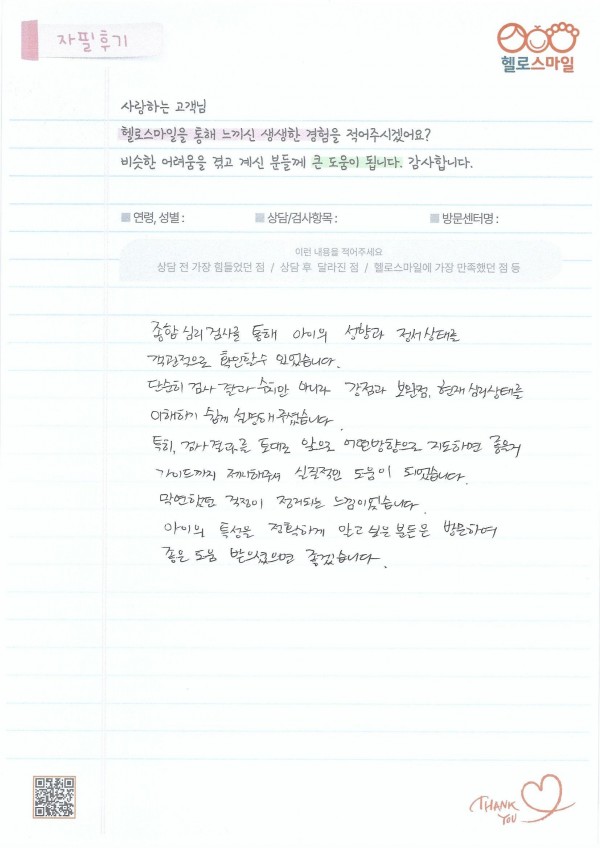 자필후기
헬로스마일
사랑하는 고객님
헬로스마일을 통해 느끼신 생생한 경험을 적어주시겠어요?
비슷한 어려움을 겪고 계신 분들께 큰 도움이 됩니다. 감사합니다.
연령, 성별 : 상담/검사항목 : 방문센터명 :
이런 내용을 적어주세요
상담 전 가장 힘들었던 점 / 상담 후 달라진 점 / 헬로스마일에 가장 만족했던 점 등
종합심리검사를 통해 아이의 성향과 정서상태를
객관적으로 확인할수 있었습니다.
단순히 검사 결과 수치만 아니라 강점과 보완점, 현재 심리상태를
이해하기 쉽게 설명해주셨습니다.
특히, 검사결과를 토대로 앞으로 어떤방향으로 지도하면 좋을지
가이드까지 제시해주셔 실질적인 도움이 되었습니다.
막연했던 걱정이 정리되는 느낌이었습니다.
아이의 특성을 정확하게 알고 싶은 분들은 방문하여
좋은 도움 받으셨으면 좋겠습니다.
THANK
YOU